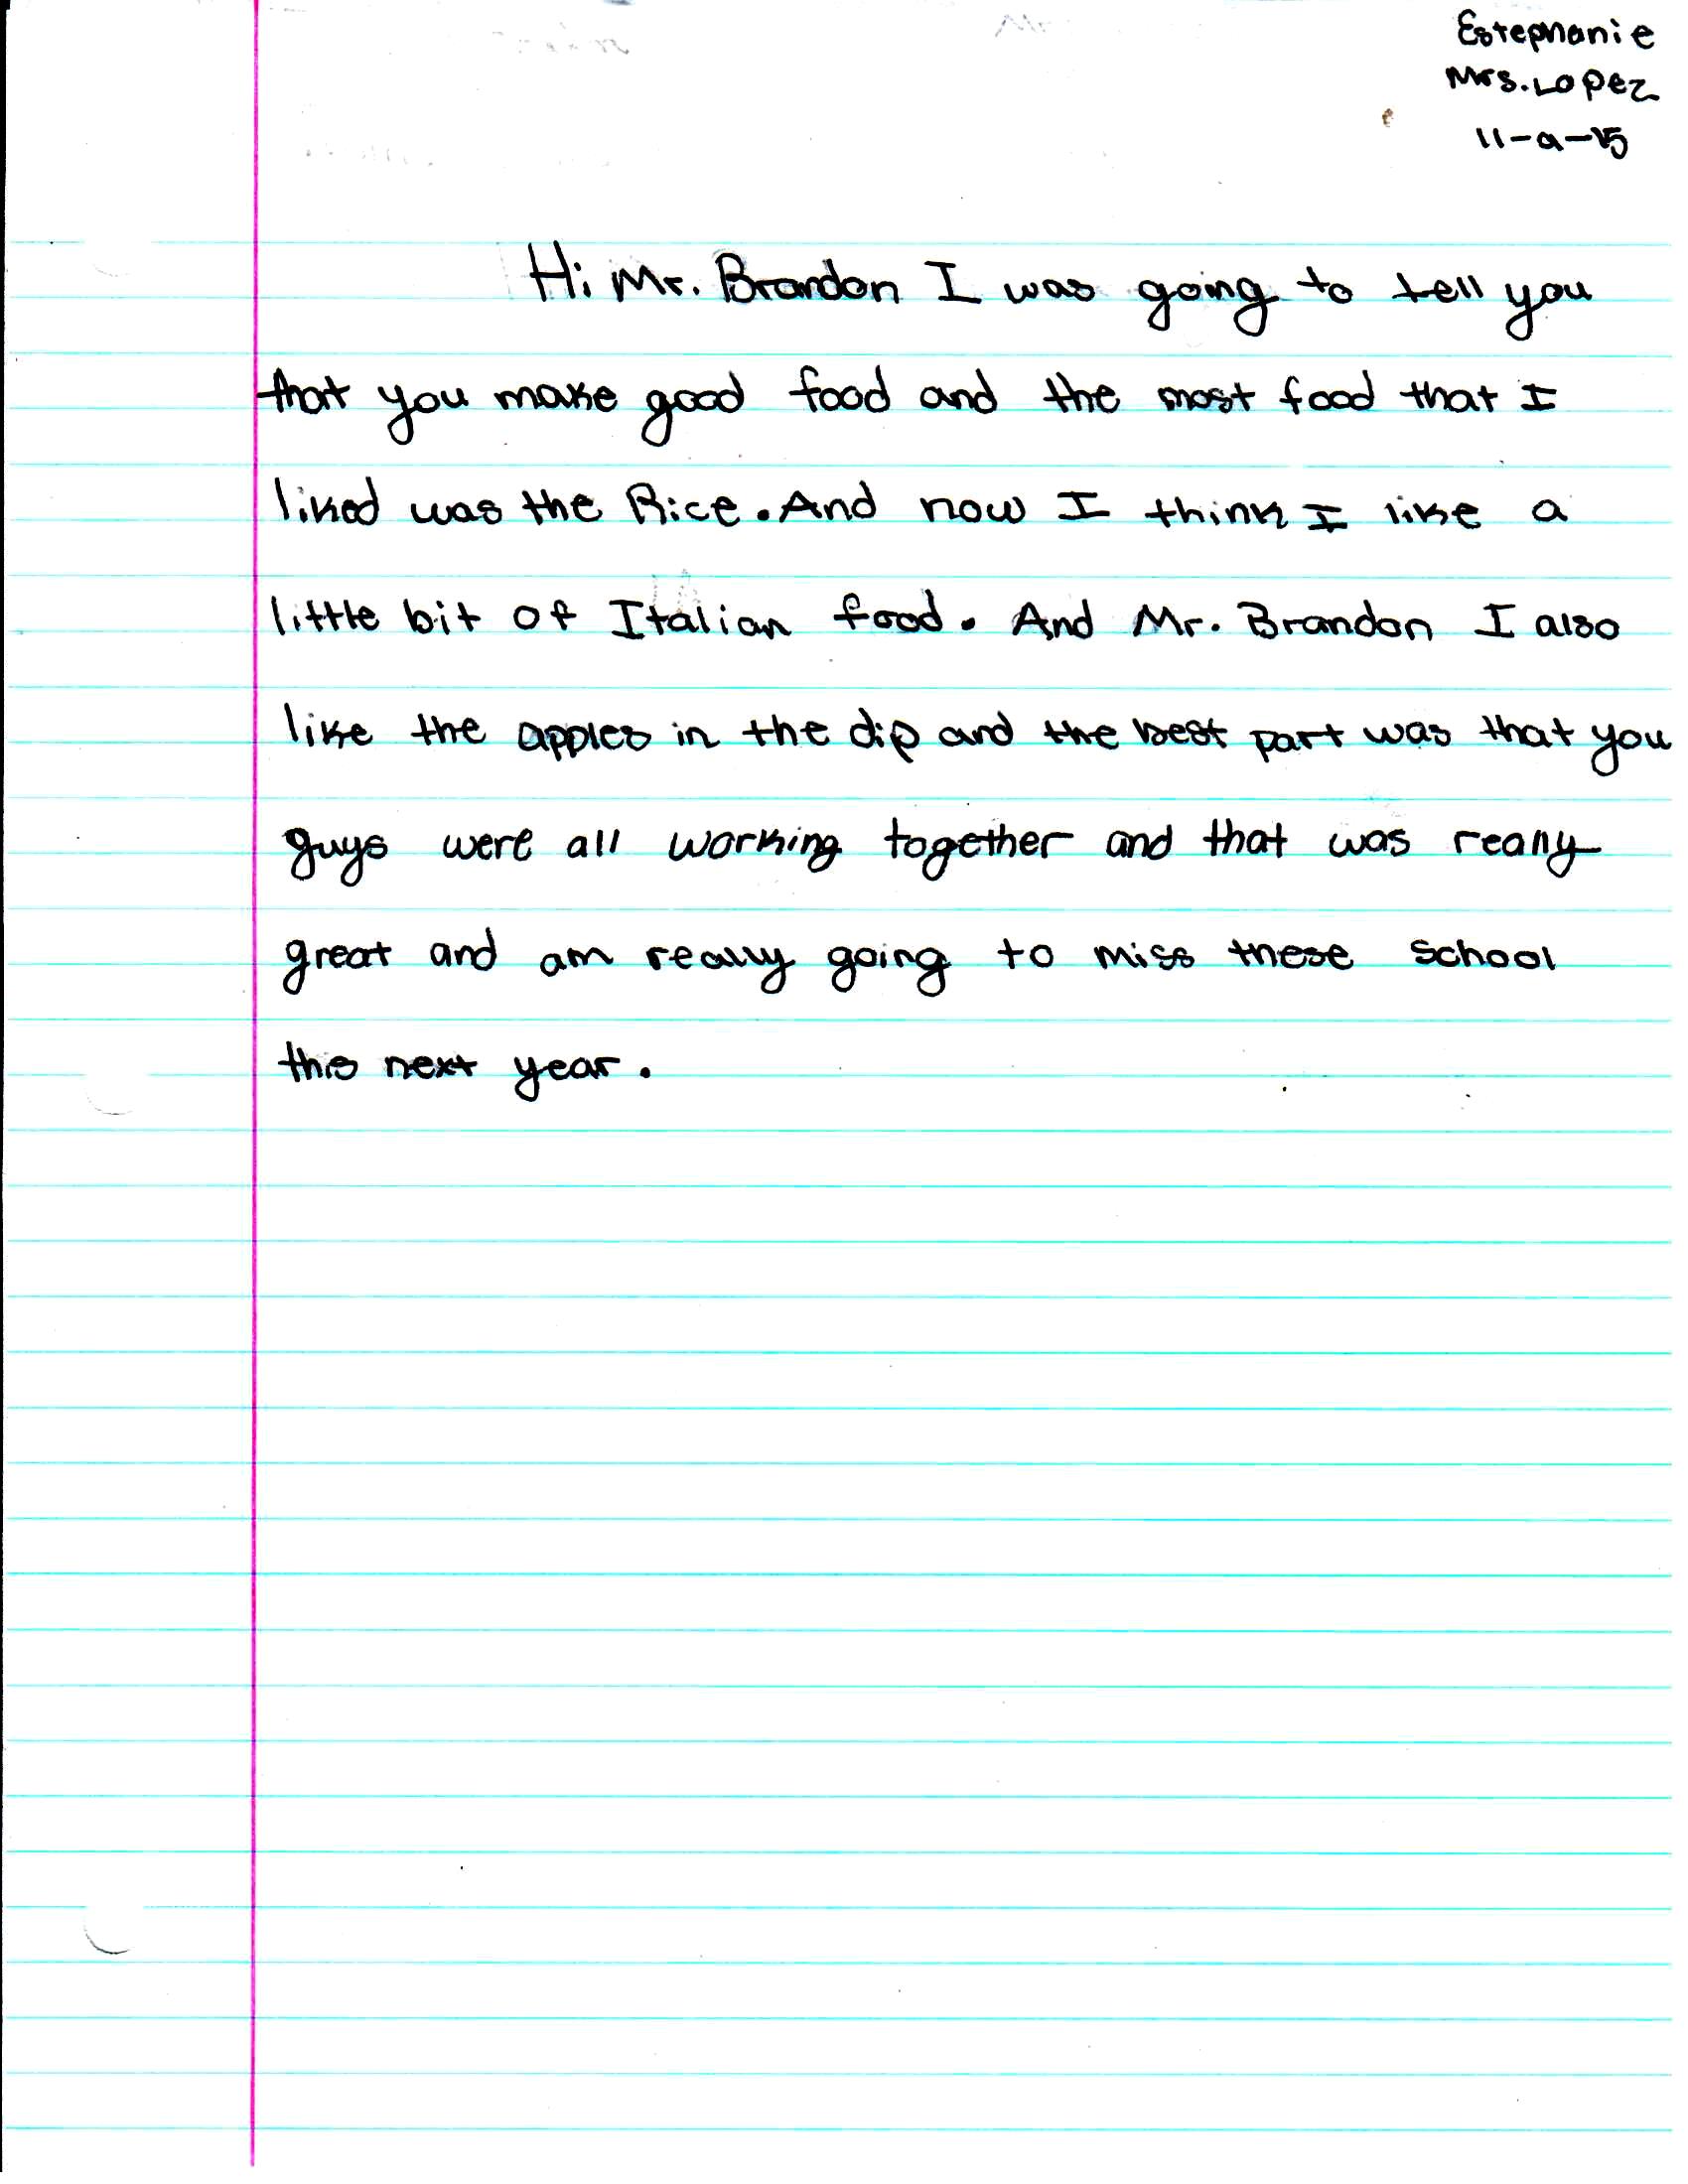 Estephanie
Mrs. Lopez
11-9-15
Hi Mr. Brandon I was going to tell you
that you make good food and the most food that I
liked was the Rice. And now I think I like a
little bit of Italian food. And Mr. Brandon I also
like the apples in the dip and the best part was that you
guys were all working together and that was really
great and am really going to miss these school
this next year.